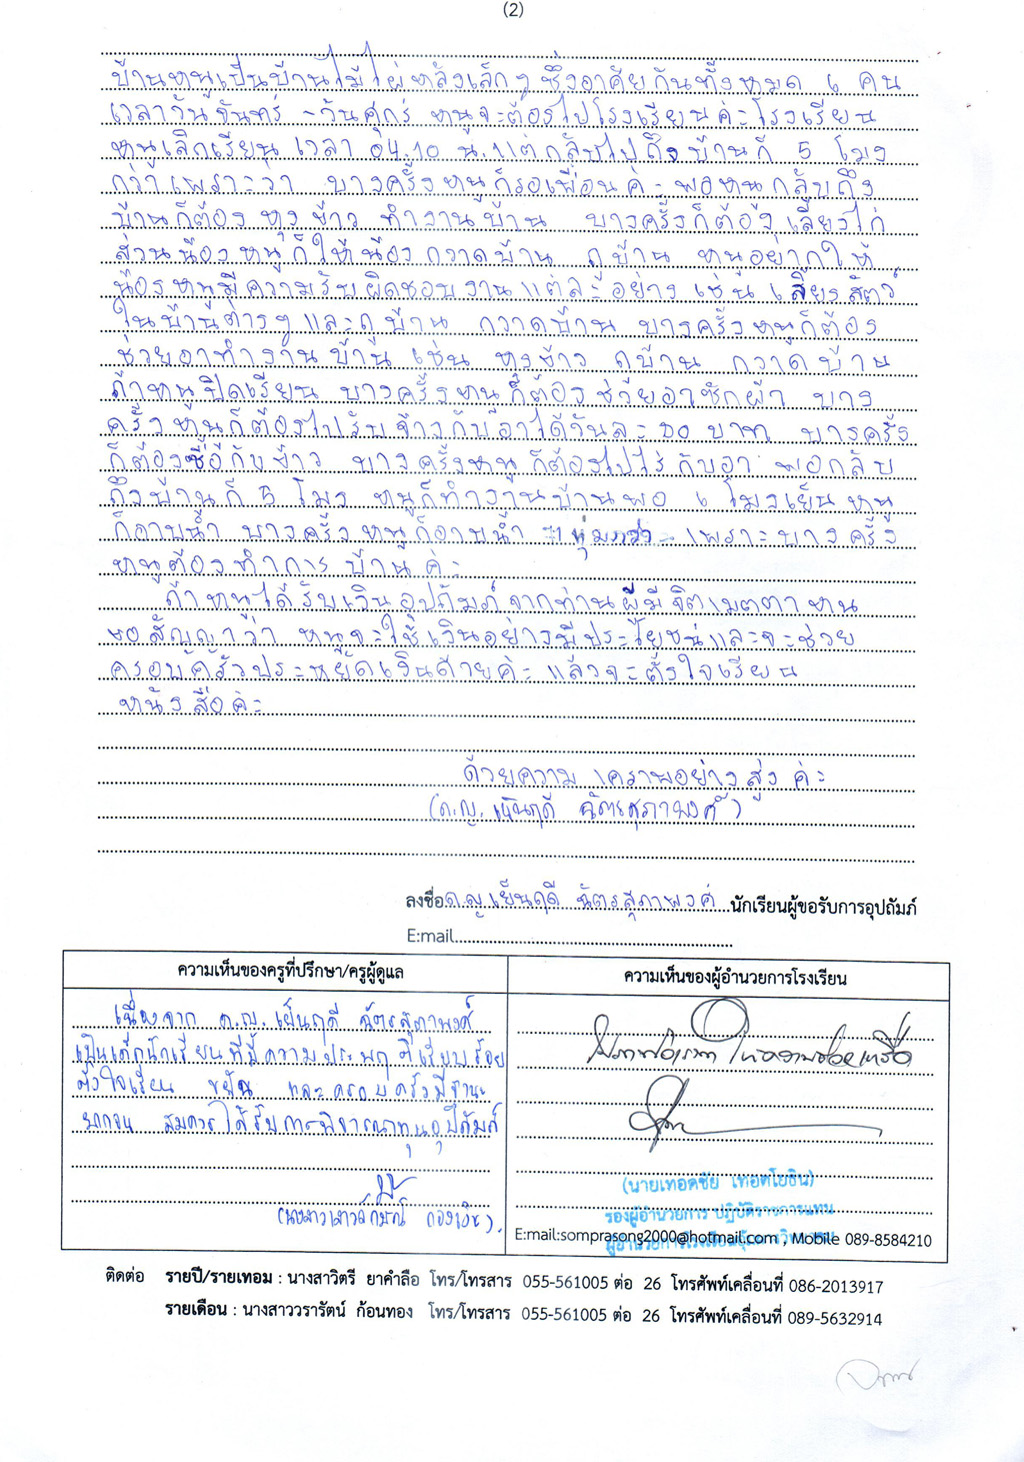 (2)
บ้านหนูเป็นบ้านไม้ไผ่หลังเล็กๆ ซึ่งอาศัยกันทั้งหมด 6 คน
เวลาวันจันทร์ - วันศุกร์ หนูจะต้องไปโรงเรียนค่ะโรงเรียน
หนูเลิกเรียน เวลา 04.10 น. แต่กลับไปถึงบ้านก็ 5 โมง
กว่าเพราะว่า บางครั้งหนูก็รอเพื่อนค่ะ พอหนูกลับถึง
บ้านก็ต้อง หุงข้าว ทำงานบ้าน บางครั้งก็ต้อง เลี้ยงไก่
ส่วนน้องหนูก็ให้น้อง กวาดบ้าน ถูบ้าน หนูอยากให้
น้องหนูมีความรับผิดชอบงานแต่ละอย่าง เช่น เลี้ยงสัตว์
ในบ้านต่างๆและถูบ้าน กวาดบ้าน บางครั้งหนูก็ต้อง
ช่วยอาทำงานบ้าน เช่น หุงข้าว ถูบ้าน กวาดบ้าน
ถ้าหนูปิดเรียน บางครั้งหนูก็ต้องช่วยอาซักผ้า บาง
ครั้งหนูก็ต้องไปรับจ้างกับอาได้วันละ บาท บางครั้ง
ก็ต้องซื้อกับข้าว บางครั้งหนูก็ต้องไปไร่กับอา พอกลับ
ถึงบ้านก็ 5 โมง หนูก็ทำงานบ้านพอ 6 โมงเย็น หนู
ก็อาบน้ำ บางครั้งหนูก็อาบน้ำ 1 ทุ่มกว่า เพราะบางครั้ง
หนูต้องทำการบ้านค่ะ
ถ้าหนูได้รับเงินอุปถัมภ์จากท่านผู้มีจิตเมตตา หนู
ขอสัญญาว่า หนูจะใช้เงินอย่างมีประโยชน์และจะช่วย
ครอบครัวประหยัดเงินด้วยค่ะ แล้วจะตั้งใจเรียน
หนังสือค่ะ
ด้วยความ เคารพอย่างสูง ค่ะ
(ด.ญ. เย็นฤดี ฉัตรสุภาพงศ์)
ลงชื่อ ด.ญ.เย็นฤดี ฉัตรสุภาพงศ์ นักเรียนผู้ขอรับการอุปถัมภ์
E:mail
ความเห็นของครูที่ปรึกษา/ครูผู้ดูแล
เนื่องจาก ด.ญ. เย็นฤดี ฉัตรสุภาพงศ์
เป็นเด็กนักเรียนที่มีความประพฤติเรียบร้อย
ตั้งใจเรียน ขยัน และครอบครัวมีฐานะ
ยากจน สมควรได้รับการพิจารณาทุนอุปถัมภ์
ความเห็นของผู้อำนวยการโรงเรียน
(นายเทอดชัย เทอดโยธิน)
รองผู้อำนวยการ ปฏิบัติราชการแทน
E:mail:somprasong2000@hotmail.com , Mobile 089-8584210
ติดต่อ รายปี/รายเทอม : นางสาวิตรี ยาคำลือ โทร/โทรสาร 055-561005 ต่อ 26 โทรศัพท์เคลื่อนที่ 086-2013917
รายเดือน : นางสาววรารัตน์ ก้อนทอง โทร/โทรสาร 055-561005 ต่อ 26 โทรศัพท์เคลื่อนที่ 089-5632914